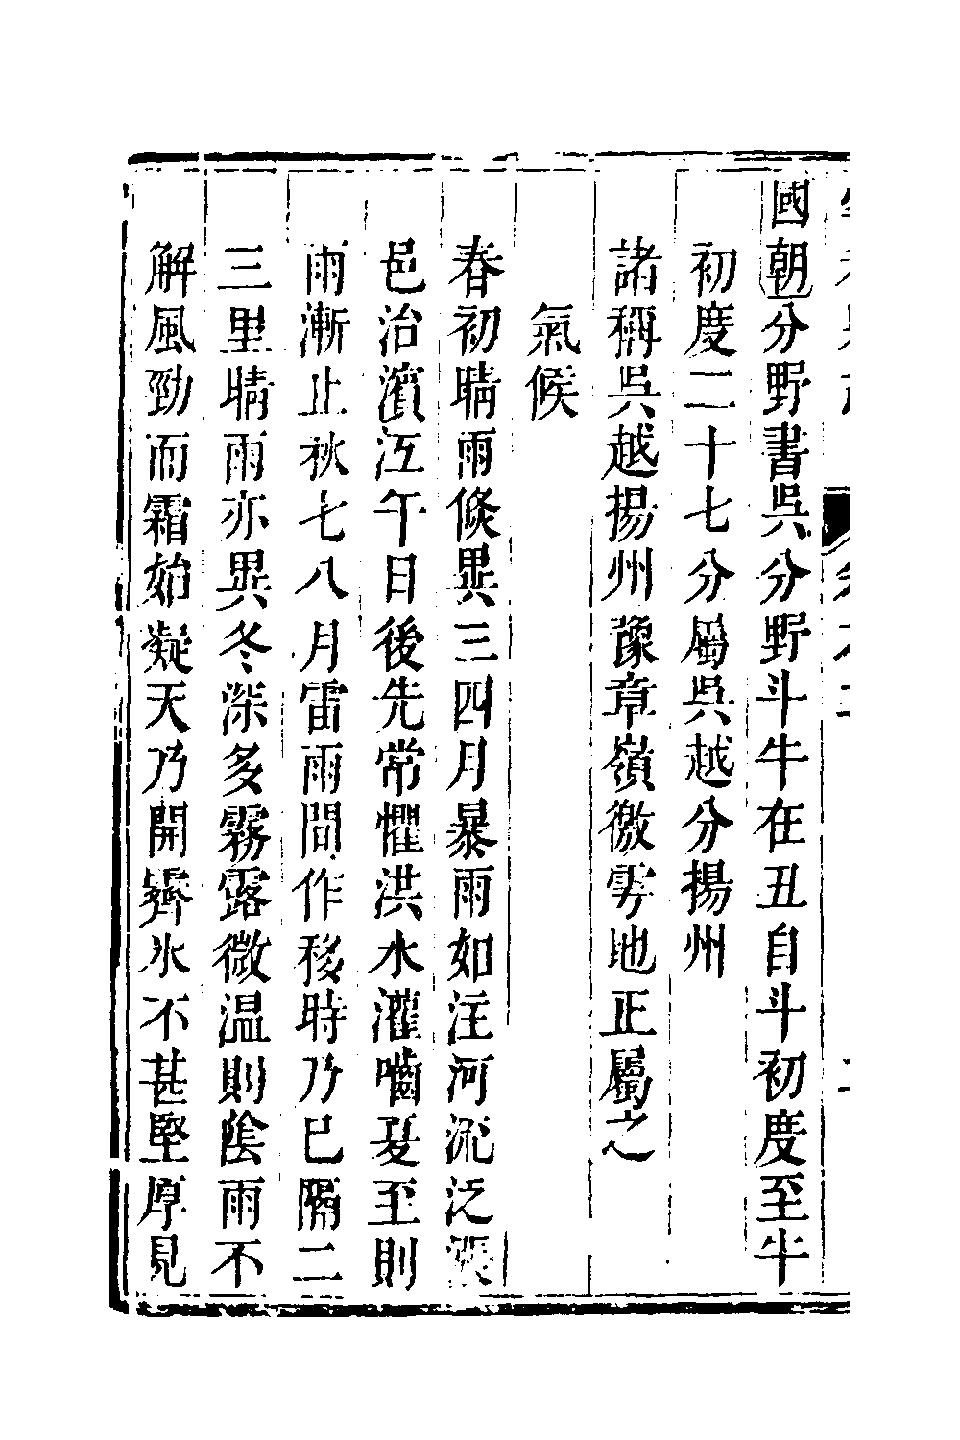 國朝分野書吳分野斗牛在丑自斗初度至牛
初度二十七分屬吳越分揚州
諸稱吳越揚州豫章嶺徼雩地正屬之
氣候
春初晴雨倐異三四月暴雨如注河流泛漲
邑治濵江午日後先常懼洪水灌嚙夏至則
雨漸止秋七八月雷雨間作移時乃已隔二
三里晴雨亦異冬深多霧露微温則陰雨不
解風勁而霜始凝天乃開霽氷不甚堅厚見